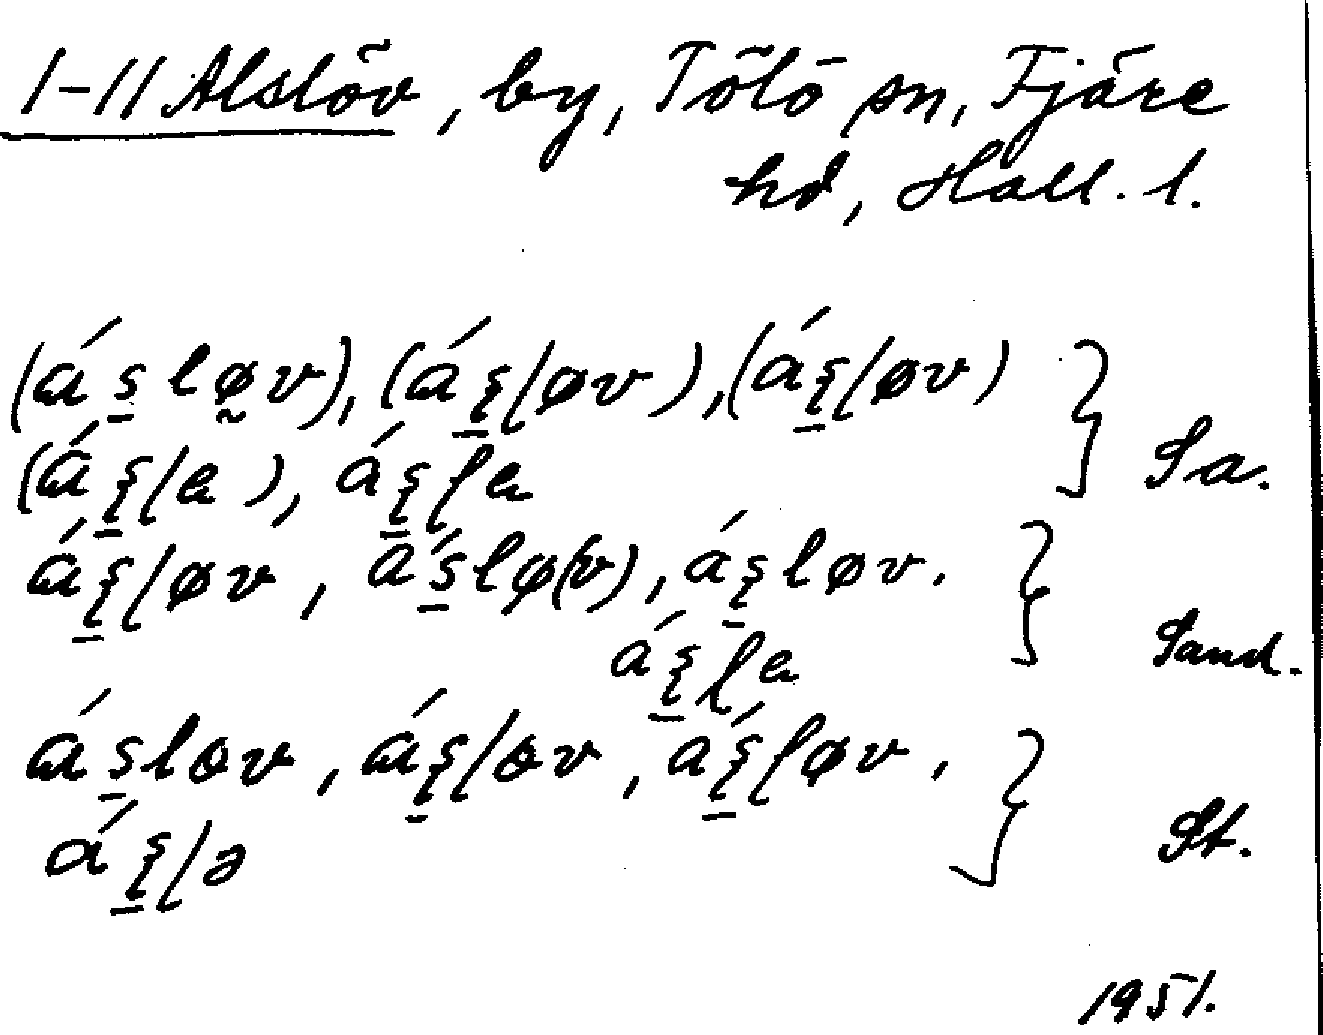 I-II Alslöv, by, Tölö sn, Fjäre
hd, Hall. l.
(ás̲lø̰v), (áʂ̲ɭøv), (áʂ̲ɭøv)
(áʂ̲ɭa), áʂ̲ɭa } Sa.
áʂ̲ɭøv, ás̲lø(v), áʂ̲løv.
áʂ̲ɭa } Sand.
ás̲lov, áʂ̲ɭov, áʂ̲ɭøv,
áʂ̲ɭə } St.
1951.